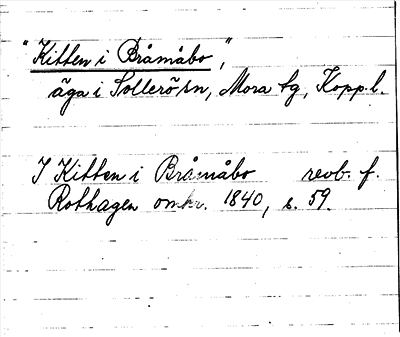 "Kitten i Bråmåbo",
äga i Sollerö sn, Mora tg, Kopp. l.
I Kitten i Bråmåbo revb. f.
Rothagen omkr. 1840, s. 59.